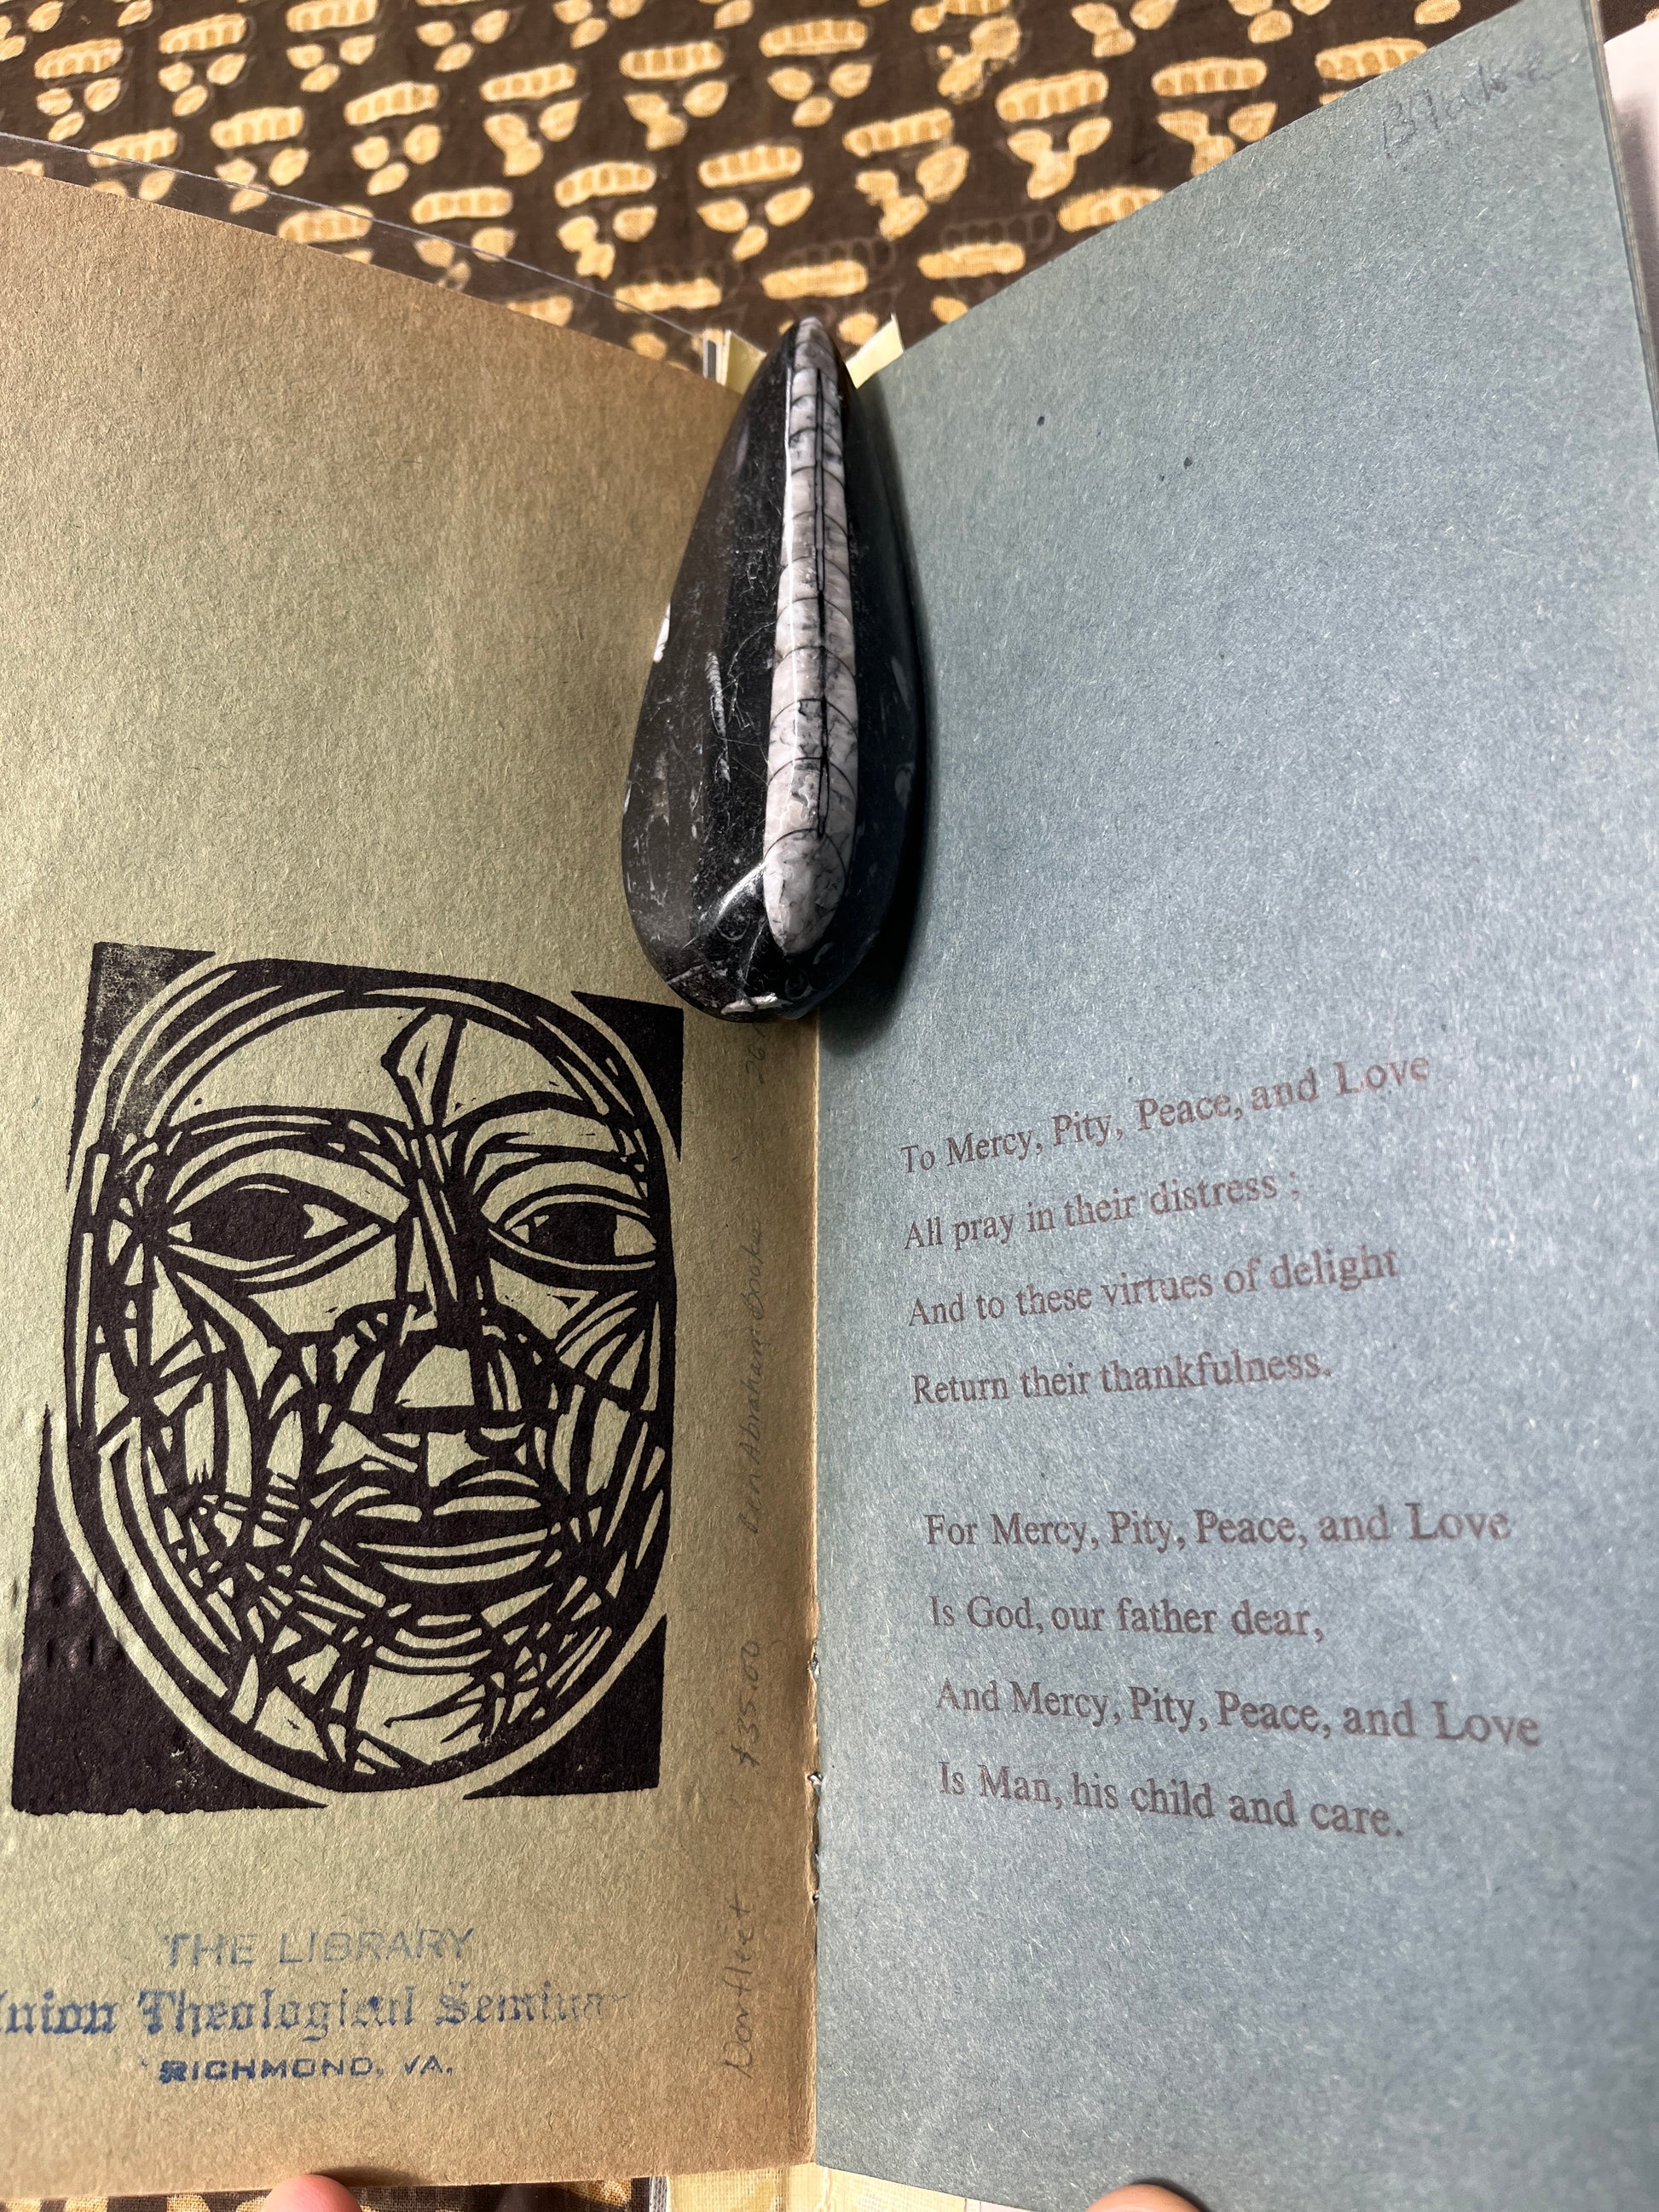 THE LIBRARY
Union Theological Seminar
RICHMOND, VA.
Dorfleit $35.00 Bern Abraham Books 26
Blake
To Mercy, Pity, Peace, and Love
All pray in their distress ;
And to these virtues of delight
Return their thankfulness.
For Mercy, Pity, Peace, and Love
Is God, our father dear,
And Mercy, Pity, Peace, and Love
Is Man, his child and care.